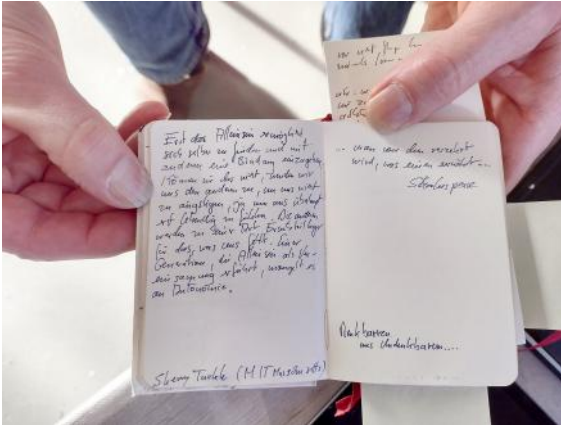 Erst das Alleinsein ermöglicht
sich selbst zu finden und mit
anderen eine Bindung einzugehen.
Können wir das nicht, wenden wir
uns den anderen zu, um uns nicht
zu ängstigen, ja um uns überhaupt
erst lebendig zu fühlen. Die anderen
werden zu einer Art Ersatzteillager
für das, was uns fehlt. Einer
Generation, die Alleinsein als
Vereinsamung erfährt, mangelt es
an Autonomie.
Sherry Turkle (MIT
... man von dem verzehrt
wird, was einen ernährt...
Shakespeare
Denkbarem
aus Undenkbarem....